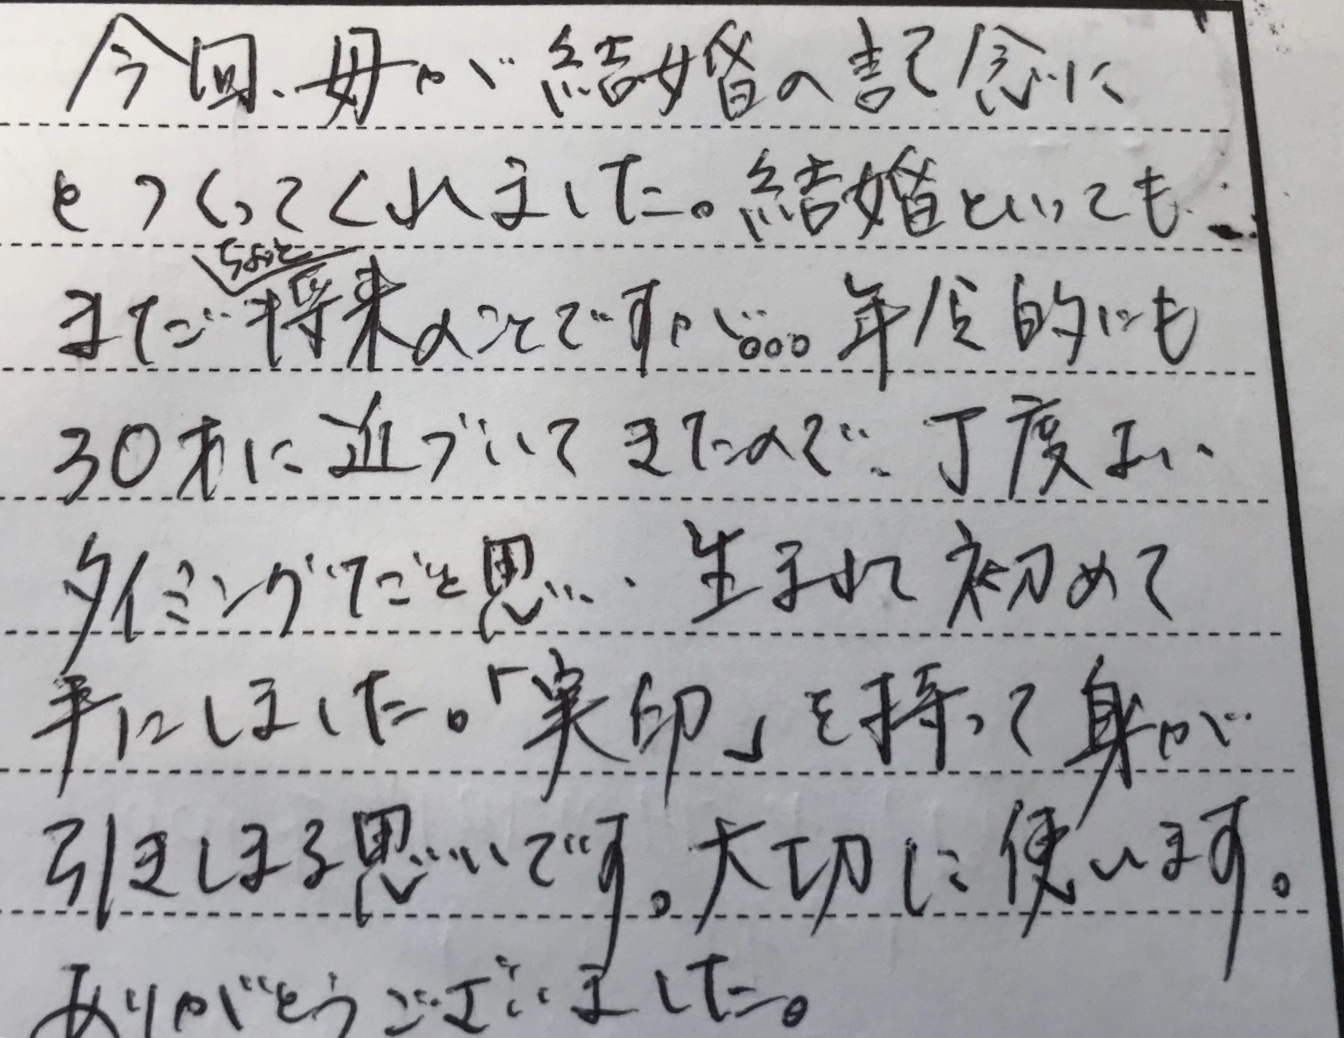 今回、母が結婚の記念に
とつくってくれました。結婚といっても
まだちょっと将来のことですが...。年令的にも
30才に近づいてきたので、丁度よい
タイミングだと思い、生まれて初めて
手にしました。「実印」を持って身が
引きしまる思いです。大切に使います。
ありがとうございました。